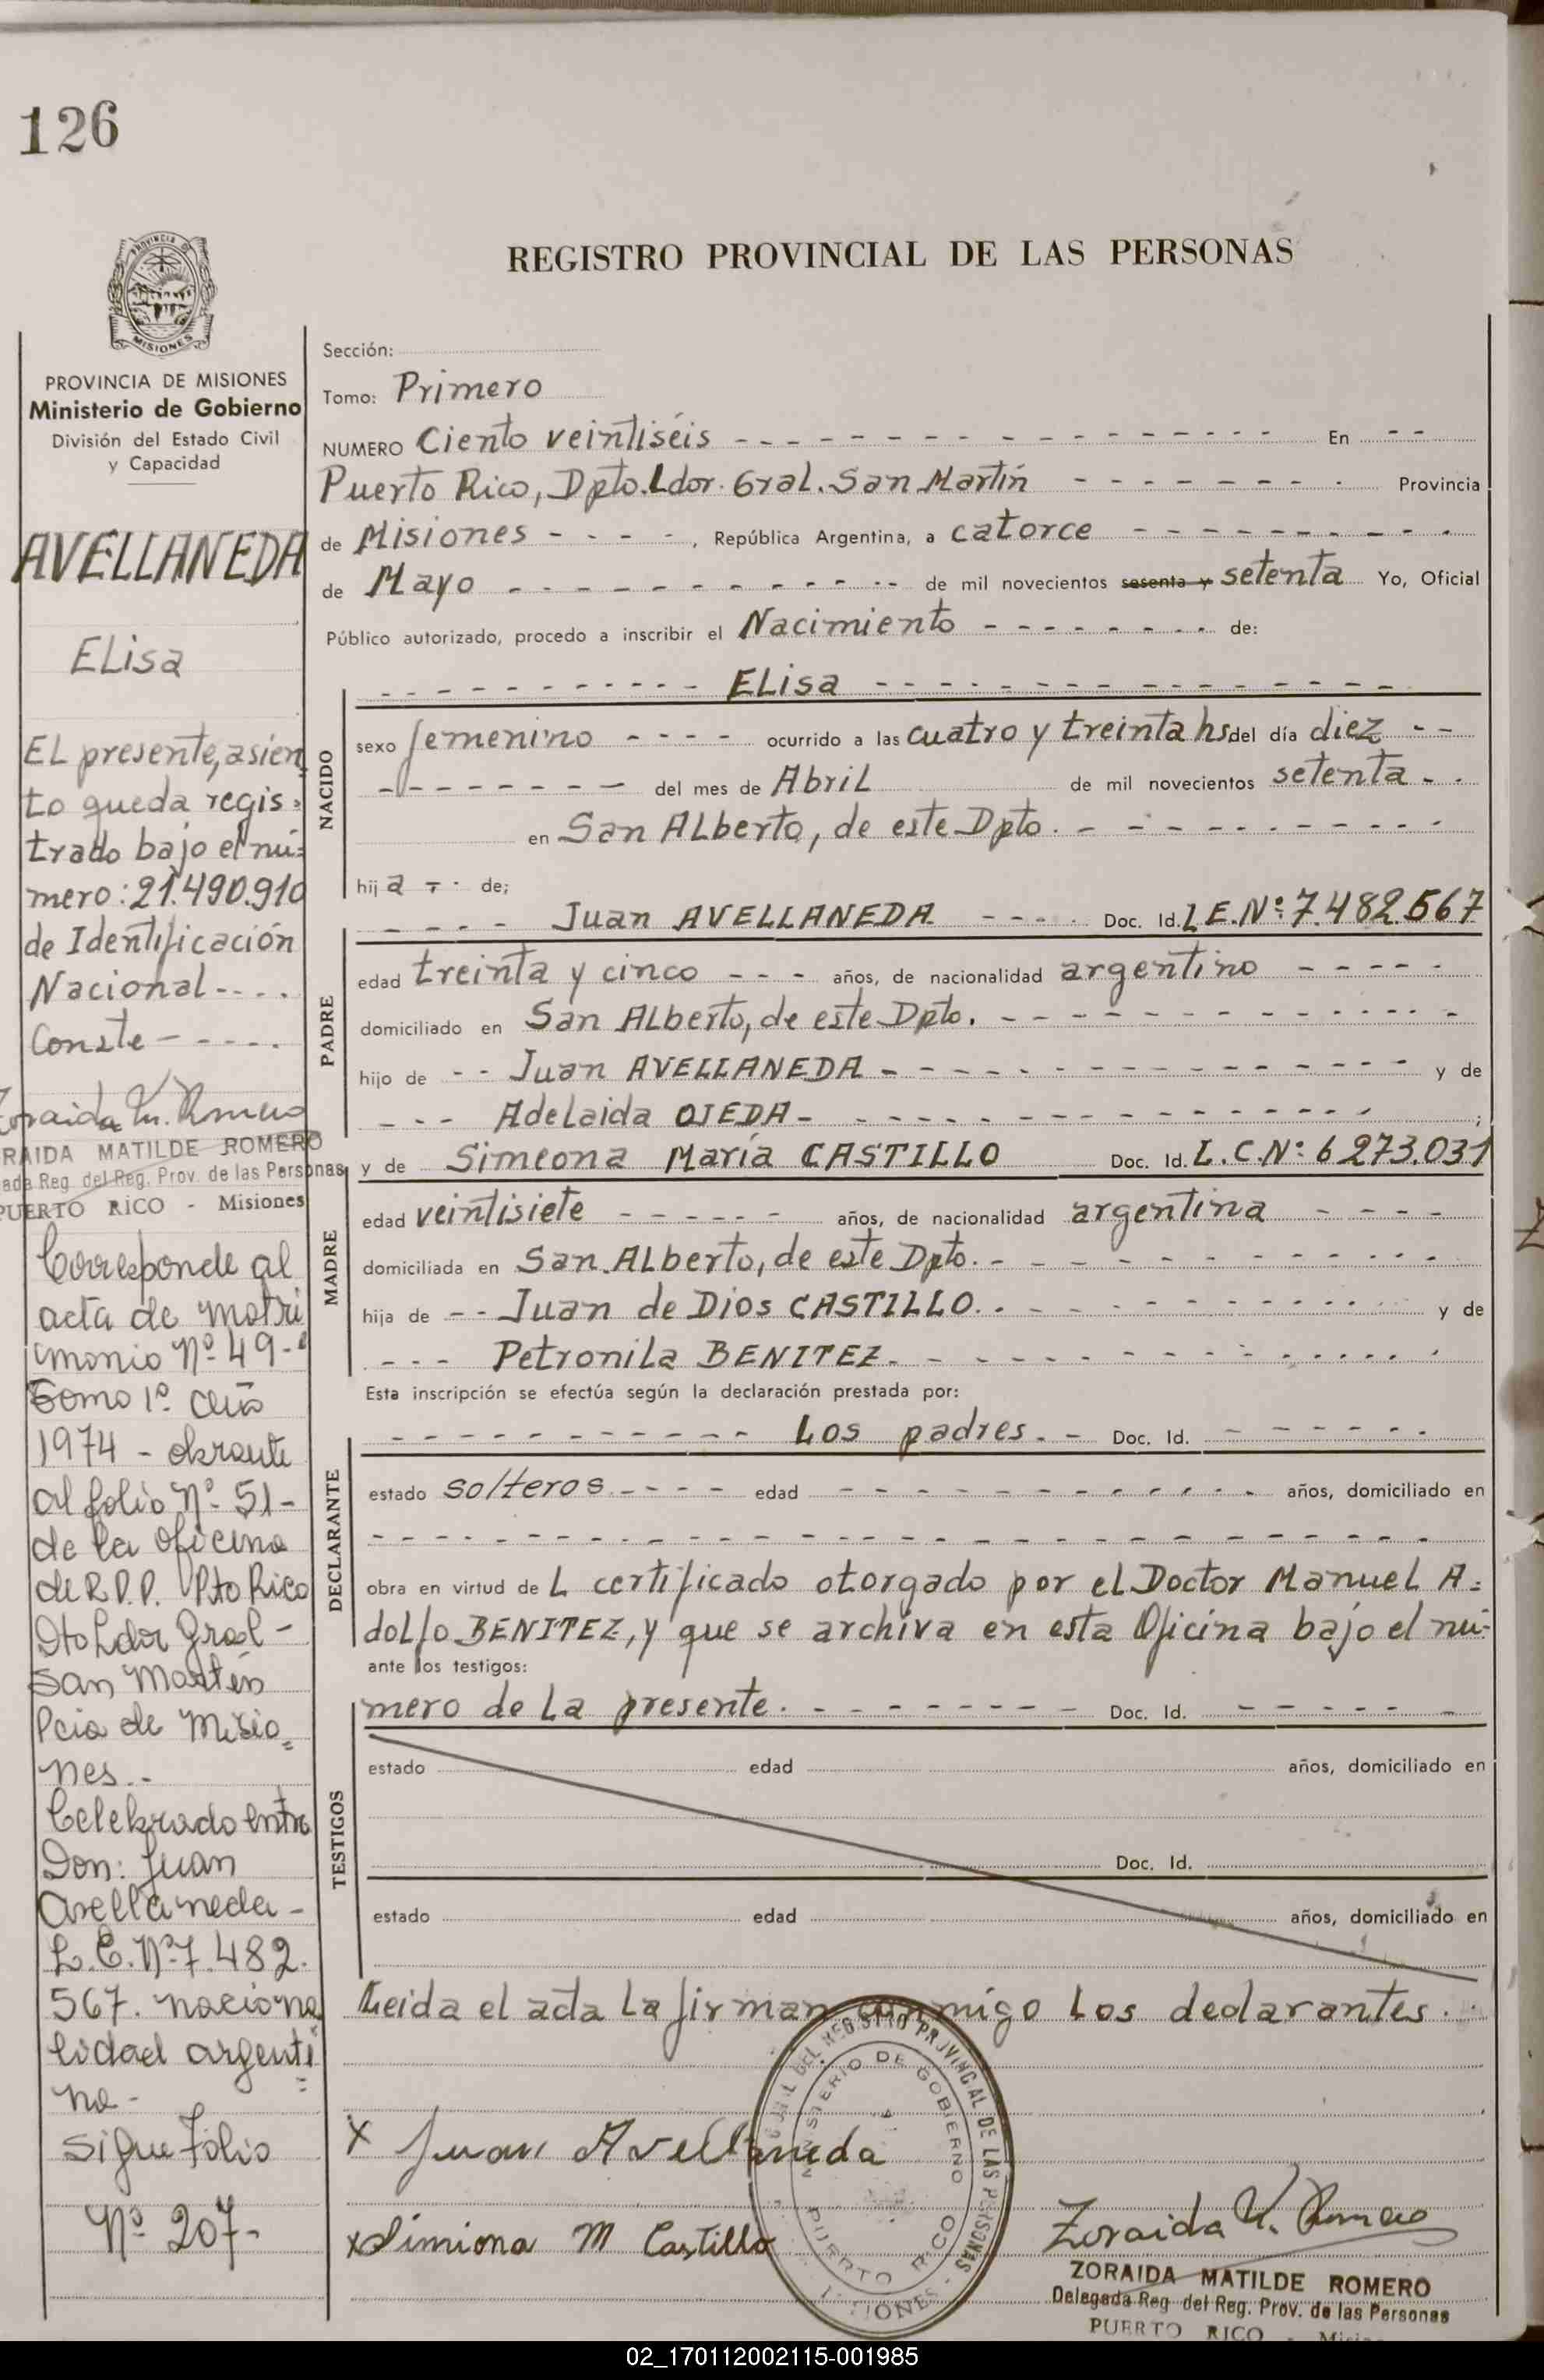 126
PROVINCIA DE
MISIONES
REGISTRO PROVINCIAL DE LAS PERSONAS
PROVINCIA DE MISIONES
Ministerio de Gobierno
División del Estado Civil
y Capacidad
AVELLANEDA
ELisa
EL presente, asien
to queda regis=
trado bajo el nú=
mero: 21.490.910
de Identificación
Nacional - - . .
Conste - - - - .
Zoraida M. Romero
RAIDA MATILDE ROMERO
ada Reg. del Reg. Prov. de las Personas
PUERTO RICO - Misiones
Corresponde al
acta de matri
monio Nº 49-
Tomo 1º año
1974 - obrante
al folio Nº 51-
de la oficina
de R.P.P. Pto Rico
Dto Ldor Gral -
San Martín
Pcia de Misio=
nes.-
Celebrado entre
Don: Juan
Avellaneda -
L.E. Nº 7.482.
567. naciona
lidad argenti=
na -
Sigue Folio
Nº 207-
Sección:
Tomo: Primero
NUMERO Ciento veintiséis - - - - En - -
Puerto Rico, Dpto. Ldor. Gral. San Martín - - - - Provincia
de Misiones - - - - , República Argentina, a catorce - - - -
de Mayo - - - - de mil novecientos sesenta y setenta Yo, Oficial
Público autorizado, procedo a inscribir el Nacimiento - - - - de:
NACIDO
- - - - ELisa - - - -
sexo femenino - - - - ocurrido a las cuatro y treinta hs del día diez - -
- - - - del mes de Abril de mil novecientos setenta - .
en San ALberto, de este Dpto. - - - -
hij a - . de;
PADRE
- - - - Juan AVELLANEDA - - - - Doc. Id. L.E.Nº: 7.482.567
edad treinta y cinco - - - años, de nacionalidad argentino - - - -
domiciliado en San ALberto, de este Dpto. - - - -
hijo de - - Juan AVELLANEDA - - - - y de
- - - Adelaida OJEDA - - - - ;
MADRE
y de Simeona María CASTILLO Doc. Id. L.C.Nº: 6.273.031
edad veintisiete - - - - años, de nacionalidad argentina - - - -
domiciliada en San. ALberto, de este Dpto. - - - -
hija de - - Juan de Dios CASTILLO. - - - - y de
- - - Petronila BENITEZ. - - - -
Esta inscripción se efectúa según la declaración prestada por:
DECLARANTE
- - - - Los padres. - Doc. Id. - - - -
estado solteros - - - - edad - - - - años, domiciliado en
- - - -
obra en virtud de L certificado otorgado por el Doctor Manuel A=
dolfo BENITEZ, y que se archiva en esta Oficina bajo el nú-
ante los testigos:
TESTIGOS
mero de La presente. - - - - Doc. Id. - - - -
estado edad años, domiciliado en
Doc. Id.
estado edad años, domiciliado en
Leida el acta La firman conmigo Los declarantes.
X Juan Avellaneda
x Simiona M Castillo
DEL REGISTRO PROVINCIAL DE LAS PERSONAS
MINISTERIO DE GOBIERNO
PUERTO RICO
MISIONES
Zoraida M. Romero
ZORAIDA MATILDE ROMERO
Delegada Reg del Reg. Prov. de las Personas
PUERTO RICO -
02_170112002115-001985